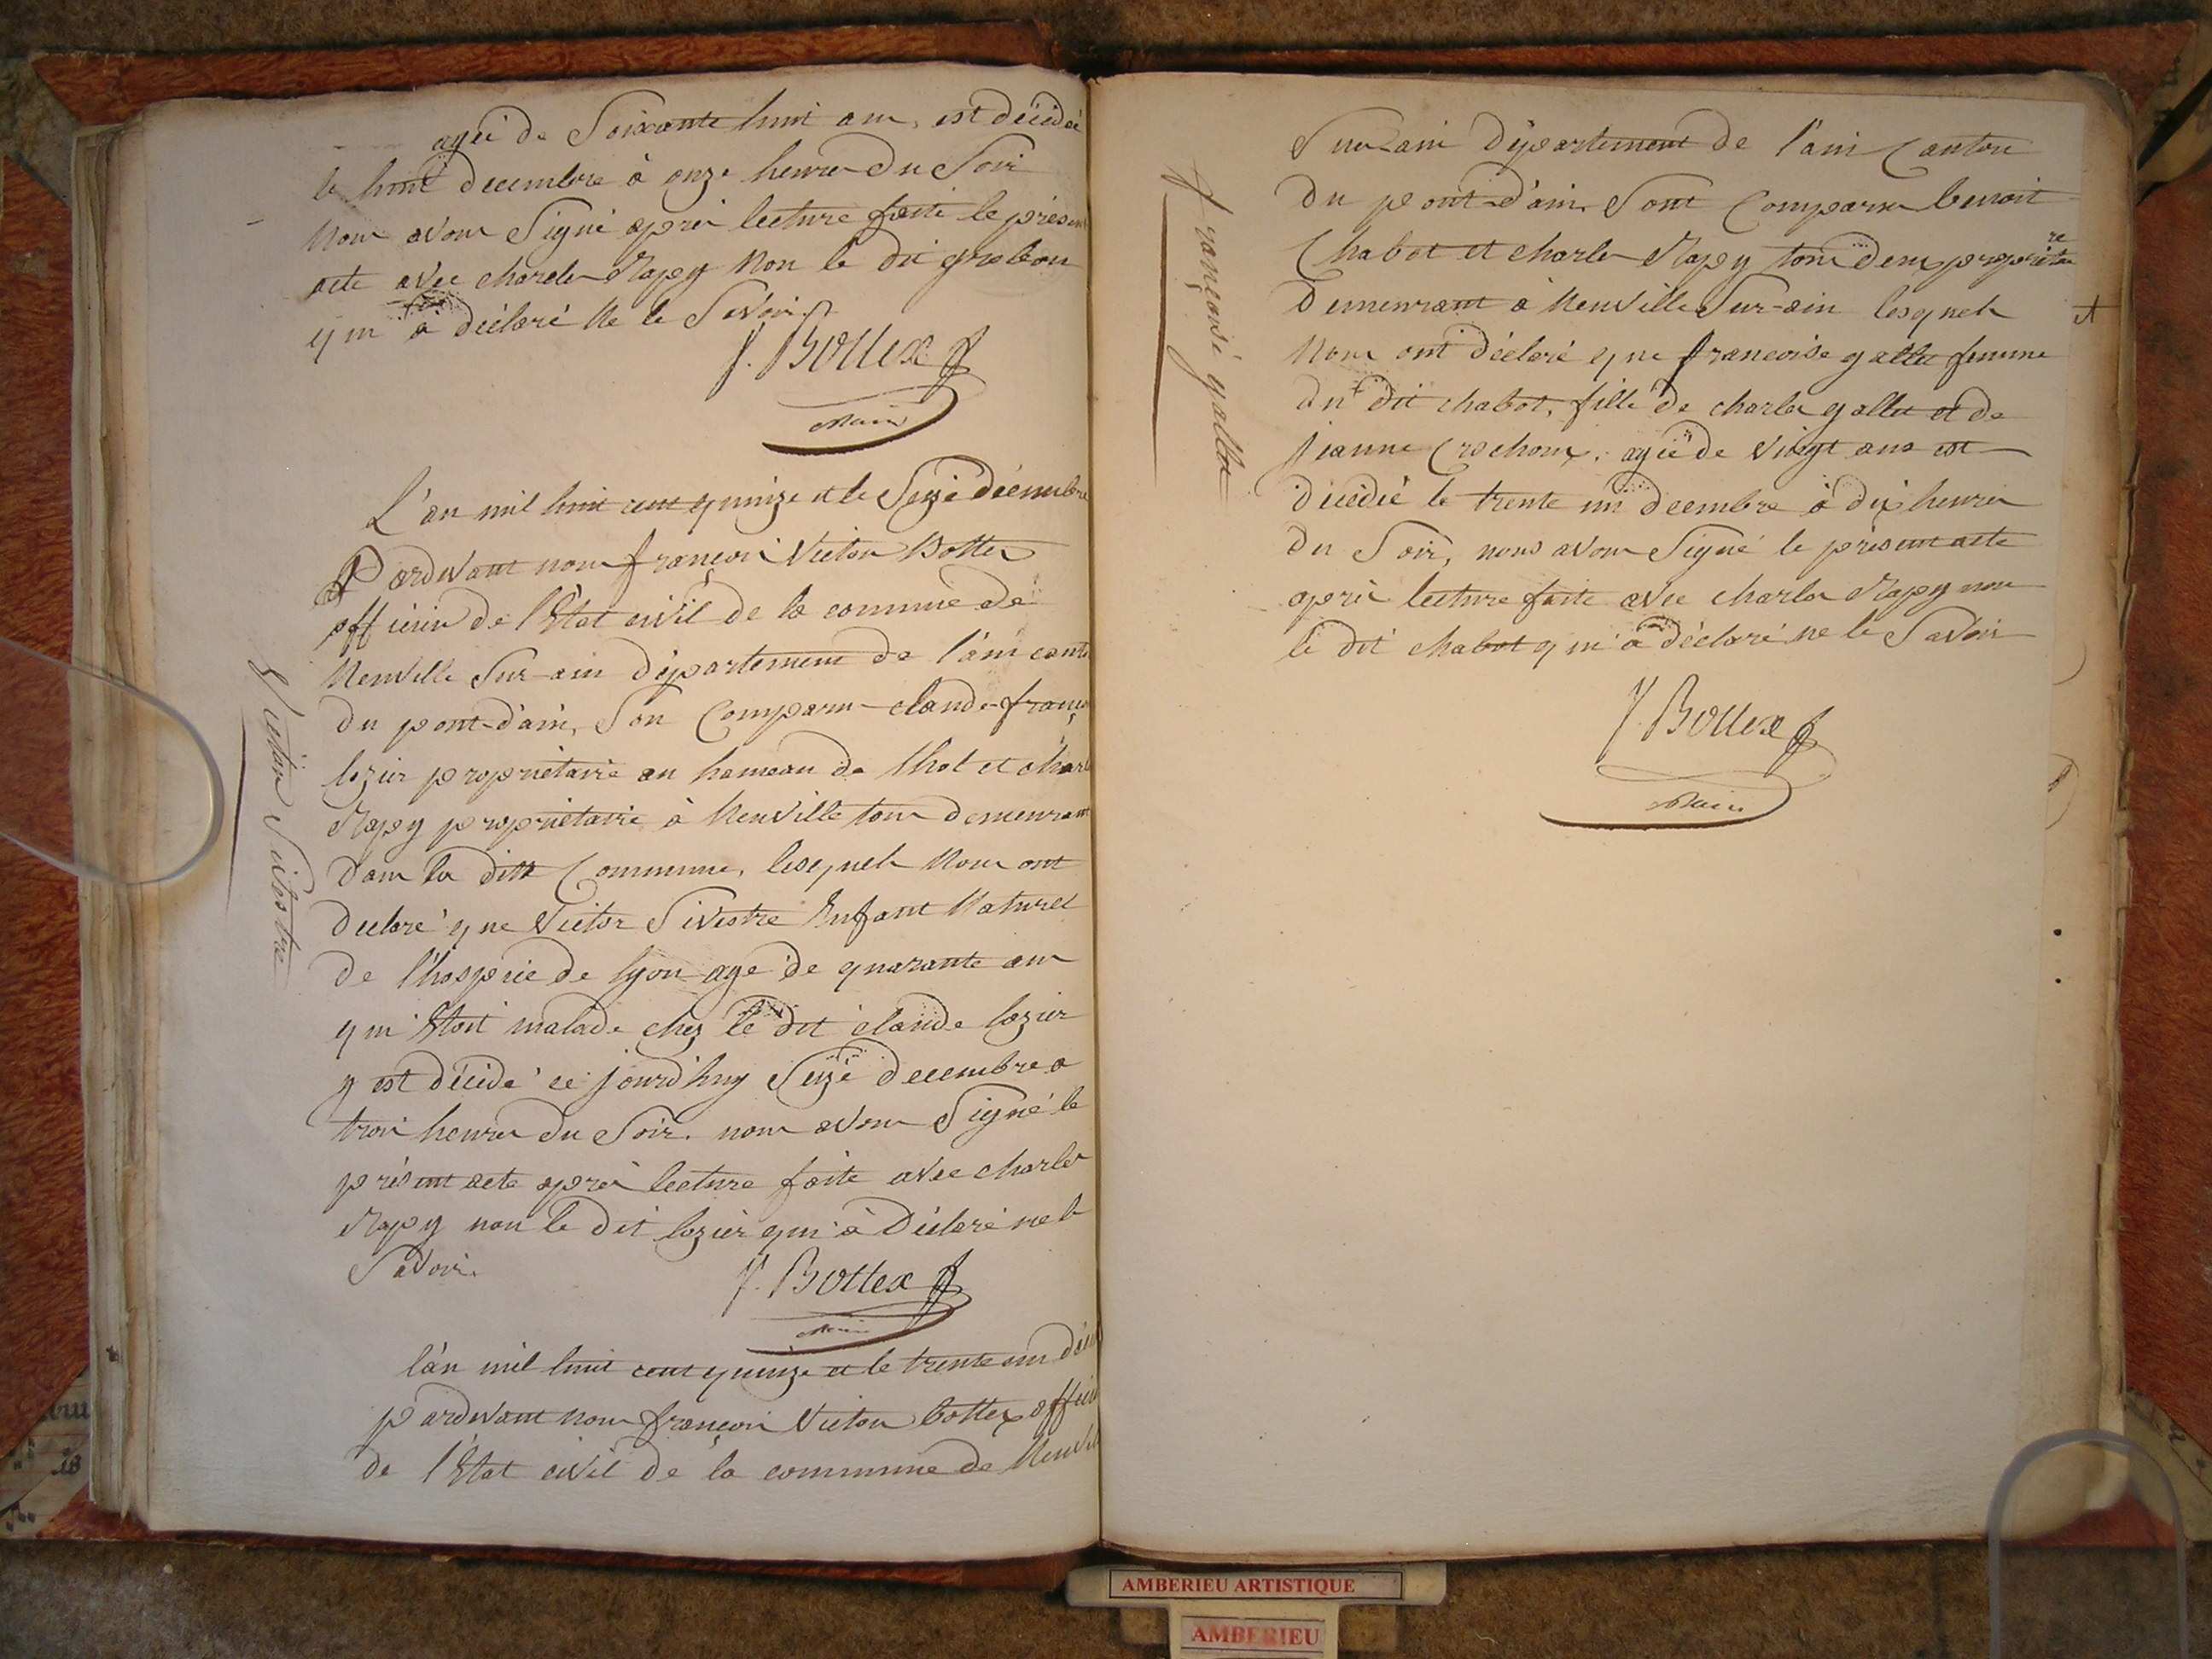 agée de Soixante huit ans, est décédée
le huit decembre à onze heures Du Soir
Nous avons Signé après lecture faite le présent
acte avec charles Rapy Non le dit grobon
qui a déclaré Ne le Savoir.
f. Bottex
Maire
Victor Sivestre
L'an mil huit cent quinze et le Seize décembre
Pardevant nous françois Victor Bottex
officier de l'Etat civil de la commune de
Neuville Sur-ain département de l'ain canton
Du pont-d'ain, Son Comparu claude-françois
lozier propriétaire au hameau de thol et charles
Rapy propriétaire à Neuville tous demeurant
Dans la ditte Commune, lesquels Nous ont
declaré que Victor Sivestre Enfant Naturel
de l'hospice de lyon age de quarante ans
qui Etoit malade chez le dit claude lozier
y est décédé ce jourd'huy Seize decembre a
trois heures Du Soir. nous avons Signé le
présent acte après lecture faite avec charles
Rapy non le dit lozier qui à Déclaré ne le
Savoir.
f. Bottex
Maire
l'an mil huit cent quinze et le trente un déc
pardevant nous françois Victor bottex officier
de l'Etat civil de la commune de Neuville
françoise gallet
Sur-ain Département de l'ain Canton
Du pont-d'ain, Sont Comparu benoit
Chabot et charles Rapy tous deux propriétaire
Demeurant à Neuville Sur-ain lesquels
Nous ont déclaré que francoise gallet femme
du dit chabot, fille de charles gallet et de
jeanne Crochoux, agée de Vingt ans est
décédée le trente un decembre à dix heures
Du Soir, nous avons Signé le present acte
après lecture faite avec charles Rapy non
le dit chabot qui a déclaré ne le Savoir
f. Bottex
Maire
AMBERIEU ARTISTIQUE
AMBERIEU